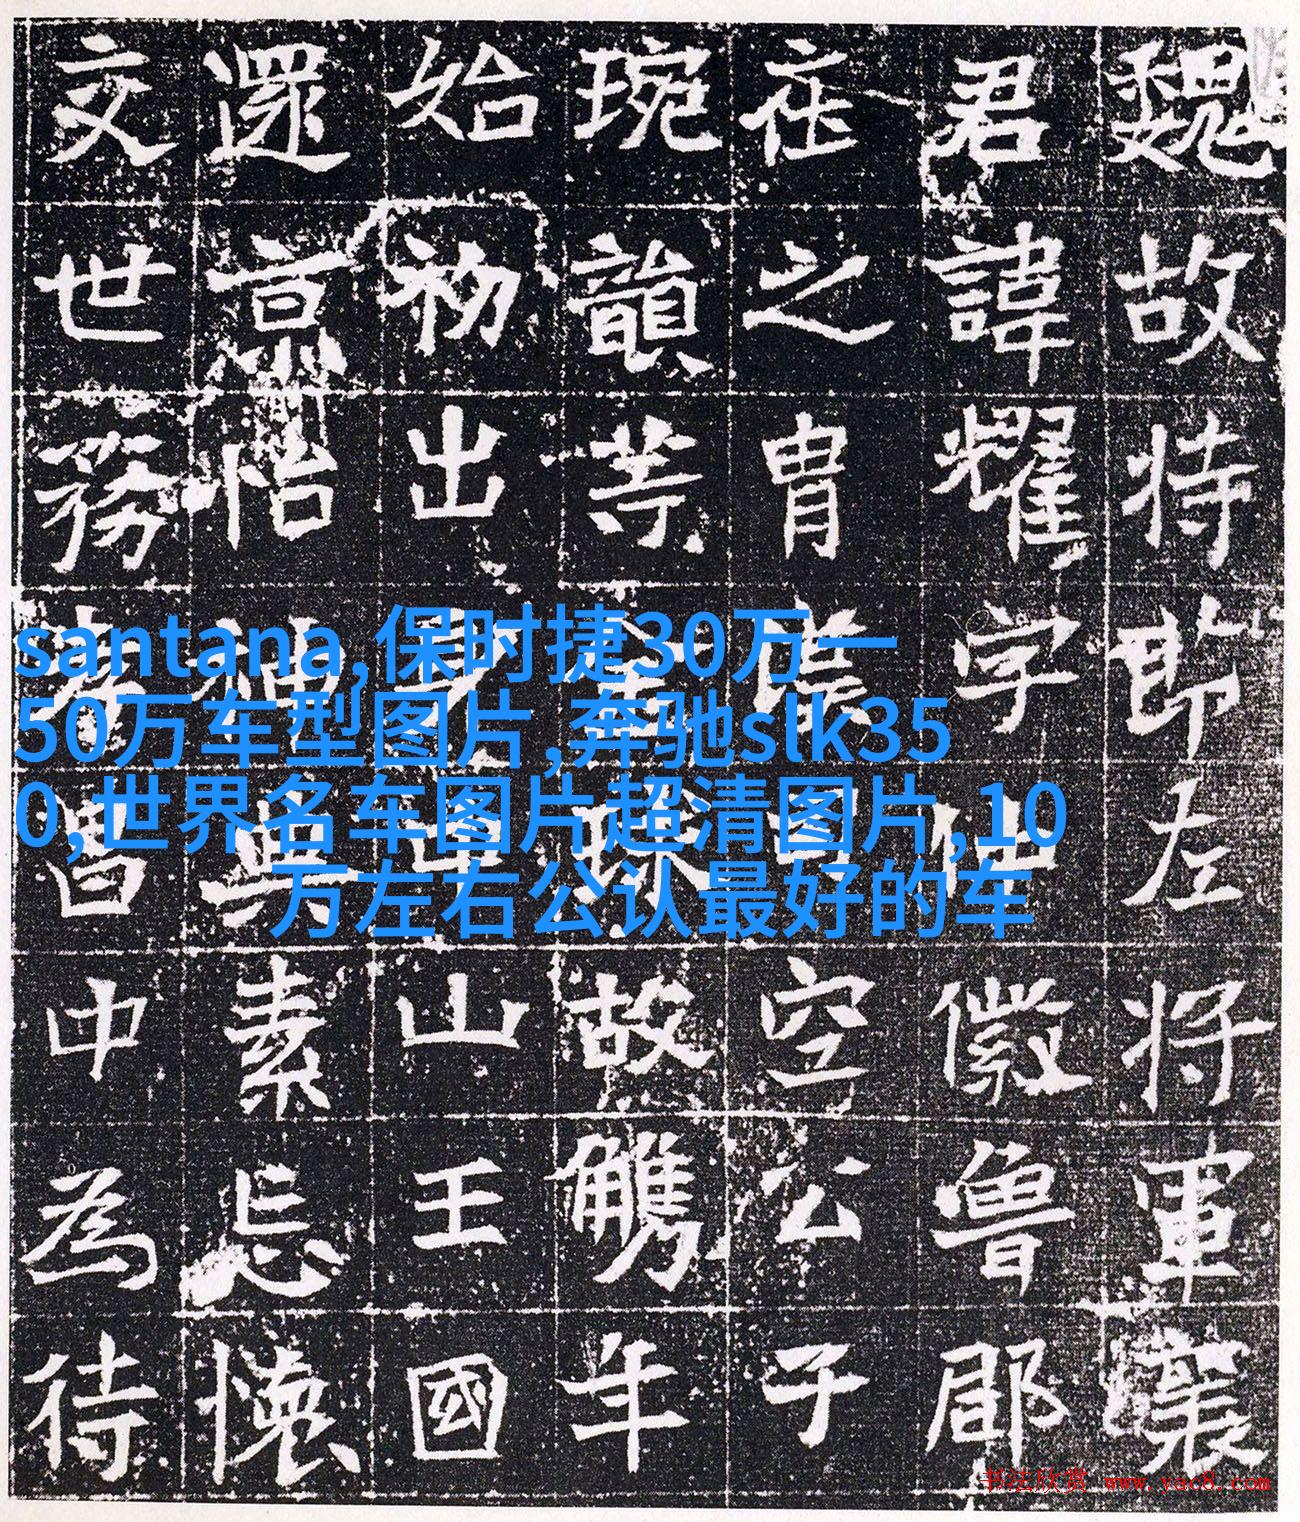 魏故持節左將軍襄
君諱耀字徽魯郡
在之胄漢空公子
琬韻等故觿年
始初出身中山王國
還京怡神典素忘懷
交世務昌中為待
santana,保时捷30万一
50万车型图片,奔驰slk35
0,世界名车图片超清图片,10
万左右公认最好的车
书法欣赏 www.yac8.com